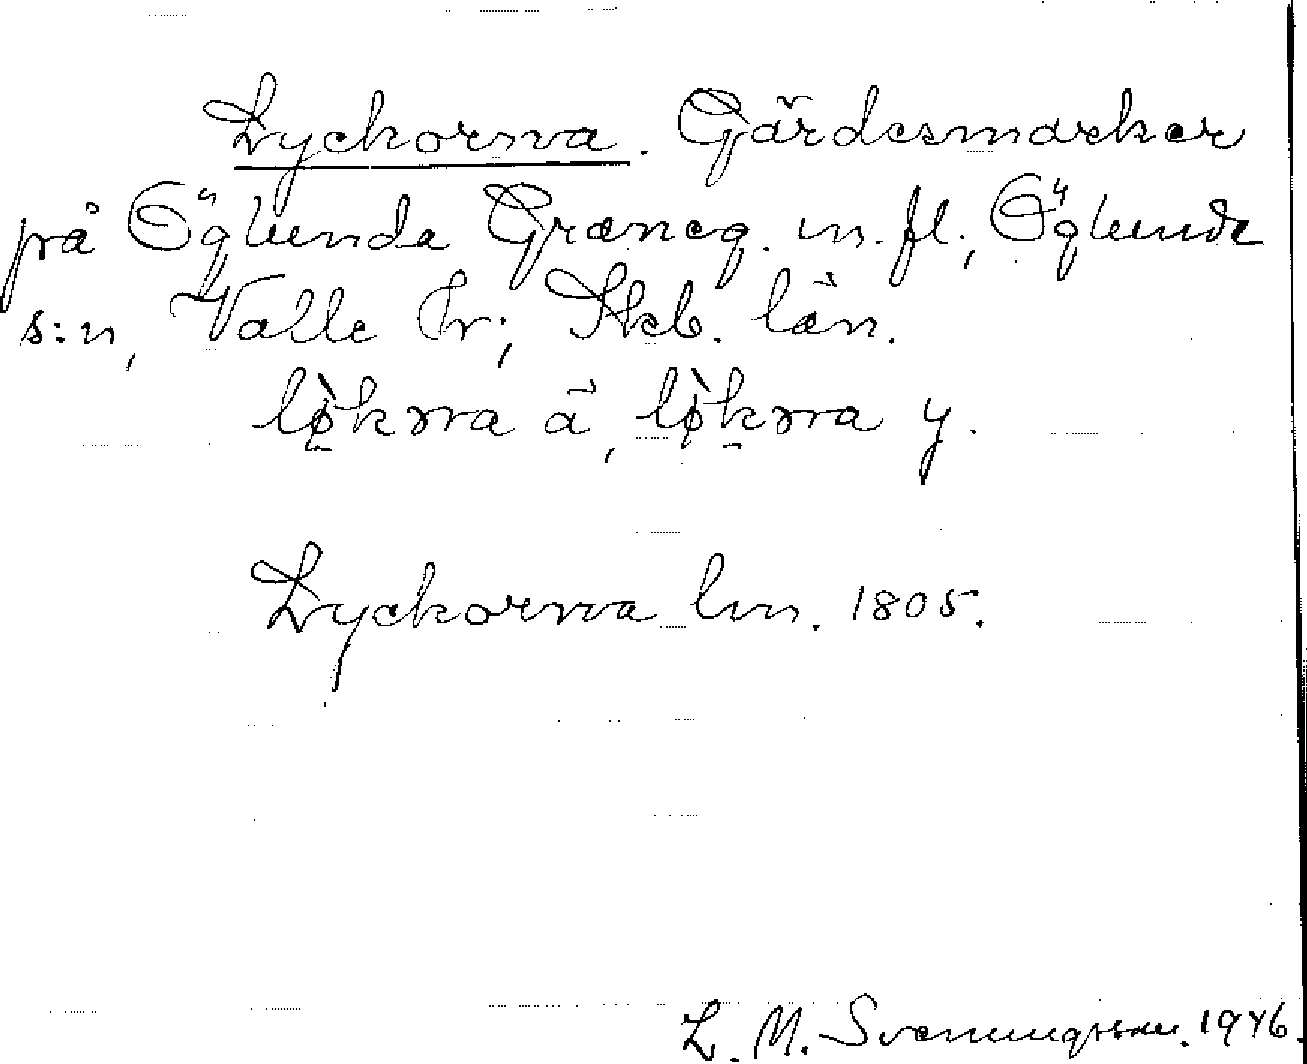 Lyckorna. Gärdesmarker
på Öglunda Graneg. m. fl., Öglunda
s:n, Valle hr; Skb. län.
lø̀kɔrna ä, lø̀kɔrna y.
Lyckorna lm. 1805.
L. M. Svenungsson. 1946.